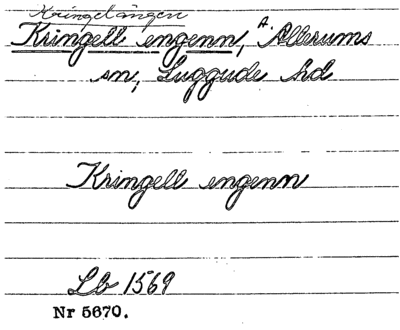 Kringelängen
Kringell engenn, A. Allerums
sn, Luggude hd
Kringell engenn
Lb 1569
Nr 5670.